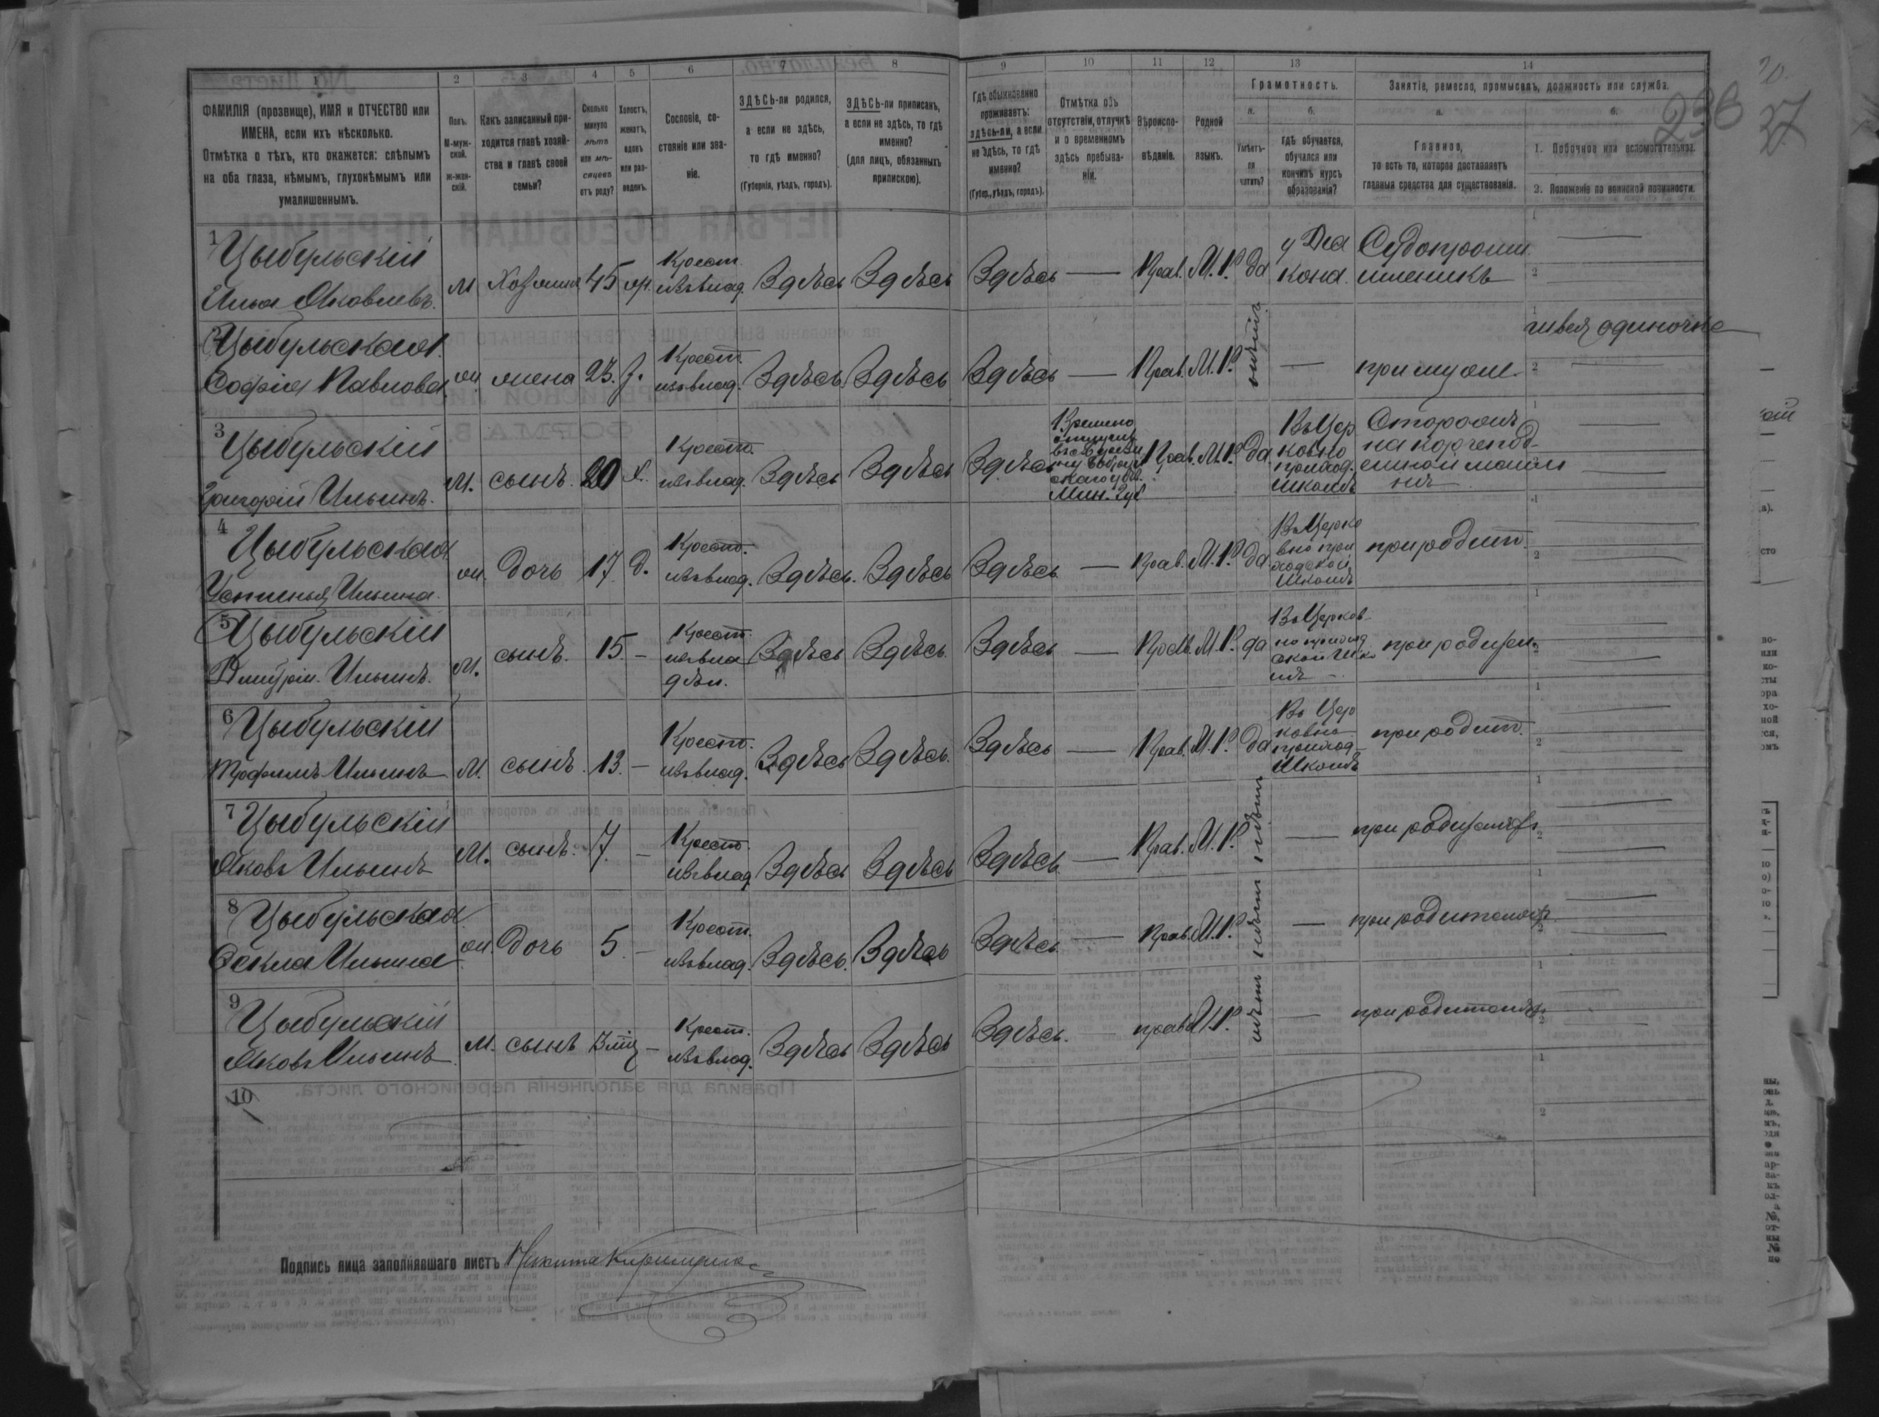 1 2 3 4 5 6 7 8 9 10 11 12 13 14
ФАМИЛІЯ (прозвище), ИМЯ и ОТЧЕСТВО или
ИМЕНА, если ихъ нѣсколько.
Отмѣтка о тѣхъ, кто окажется: слѣпымъ
на оба глаза, нѣмымъ, глухонѣмымъ или
умалишеннымъ.
Полъ.
М-муж-
ской.
Ж-жен-
скій.
Какъ записанный при-
ходится главѣ хозяй-
ства и главѣ своей
семьи?
Сколько
минуло
лѣтъ
или мѣ-
сяцевъ
отъ роду?
Холостъ,
женатъ,
вдовъ
или раз-
веденъ.
Сословіе, со-
стояніе или зва-
ніе.
ЗДѢСЬ-ли родился,
а если не здѣсь,
то гдѣ именно?
(Губернія, уѣздъ, городъ).
ЗДѢСЬ-ли приписанъ,
а если не здѣсь, то гдѣ
именно?
(для лицъ, обязанныхъ
припискою).
Гдѣ обыкновенно
проживаетъ:
здѣсь-ли, а если
не здѣсь, то гдѣ
именно?
(Губер., уѣздъ, городъ).
Отмѣтка объ
отсутствіи, отлучкѣ
и о временномъ
здѣсь пребыва-
ніи.
Вѣроиспо-
вѣданіе.
Родной
языкъ.
Грамотность.
а.
Умѣетъ-
ли
читать?
б.
гдѣ обучается,
обучался или
кончилъ курсъ
образованія?
Занятіе, ремесло, промыселъ, должность или служба.
а.
Главное,
то есть то, которое доставляетъ
главныя средства для существованія.
б.
1. Побочное или вспомогательное.
2. Положеніе по воинской повинности.
236
27
1 Цыбульскій
Илья Яковлевъ.
М Хозяинъ 45 ж. Крест.
изъ влад. Здѣсь Здѣсь Здѣсь — Прав. М.Р. да
у Дья
кона.
2 Цыбульская
Софія Павлова
ж жена 23. з. Крест.
изъ влад. Здѣсь Здѣсь Здѣсь — Прав. М.Р. нѣтъ — при мужѣ
швея одиночка
3 Цыбульскій
Григорій Ильинъ.
М. сынъ. 20 х. Крест.
изъ влад. Здѣсь Здѣсь Здѣсь
Мин. Губ
Прав. М.Р. да
Въ Цер
ковно
приход.
школѣ
Сторожъ
4 Цыбульская
Устинья Ильина.
ж. дочь 17 д. Крест.
изъ влад. Здѣсь. Здѣсь Здѣсь — Прав. М.Р. да
Въ Церко
вно при
ходской
школѣ
при родит.
5 Цыбульскій
Дмитрій Ильинъ.
М. сынъ. 15. — Крест.
изъ вла
дѣл. Здѣсь Здѣсь. Здѣсь — Прав. М.Р. да
Въ Церков
но приход
ской шко
лѣ —
при родител.
6 Цыбульскій
Трофимъ Ильинъ
М. сынъ 13. — Крест.
изъ влад. Здѣсь Здѣсь. Здѣсь — Прав. М.Р. да
Въ Цер
ковно
приход
школѣ
при родит.
7 Цыбульскій
Яковъ Ильинъ
М. сынъ. 7. — Крест.
изъ влад Здѣсь Здѣсь Здѣсь — Прав. М.Р. нѣтъ — при родителяхъ
8 Цыбульская
Ѳекла Ильина
ж. дочь 5. — Крест.
изъ влад. Здѣсь. Здѣсь Здѣсь. — Прав. М.Р. нѣтъ — при родителяхъ
9 Цыбульскій
Яковъ Ильинъ
М. сынъ — Крест.
изъ влад. Здѣсь Здѣсь Здѣсь. — прав. М.Р. нѣтъ — при родителяхъ
10
Подпись лица заполнявшаго листъ Никита